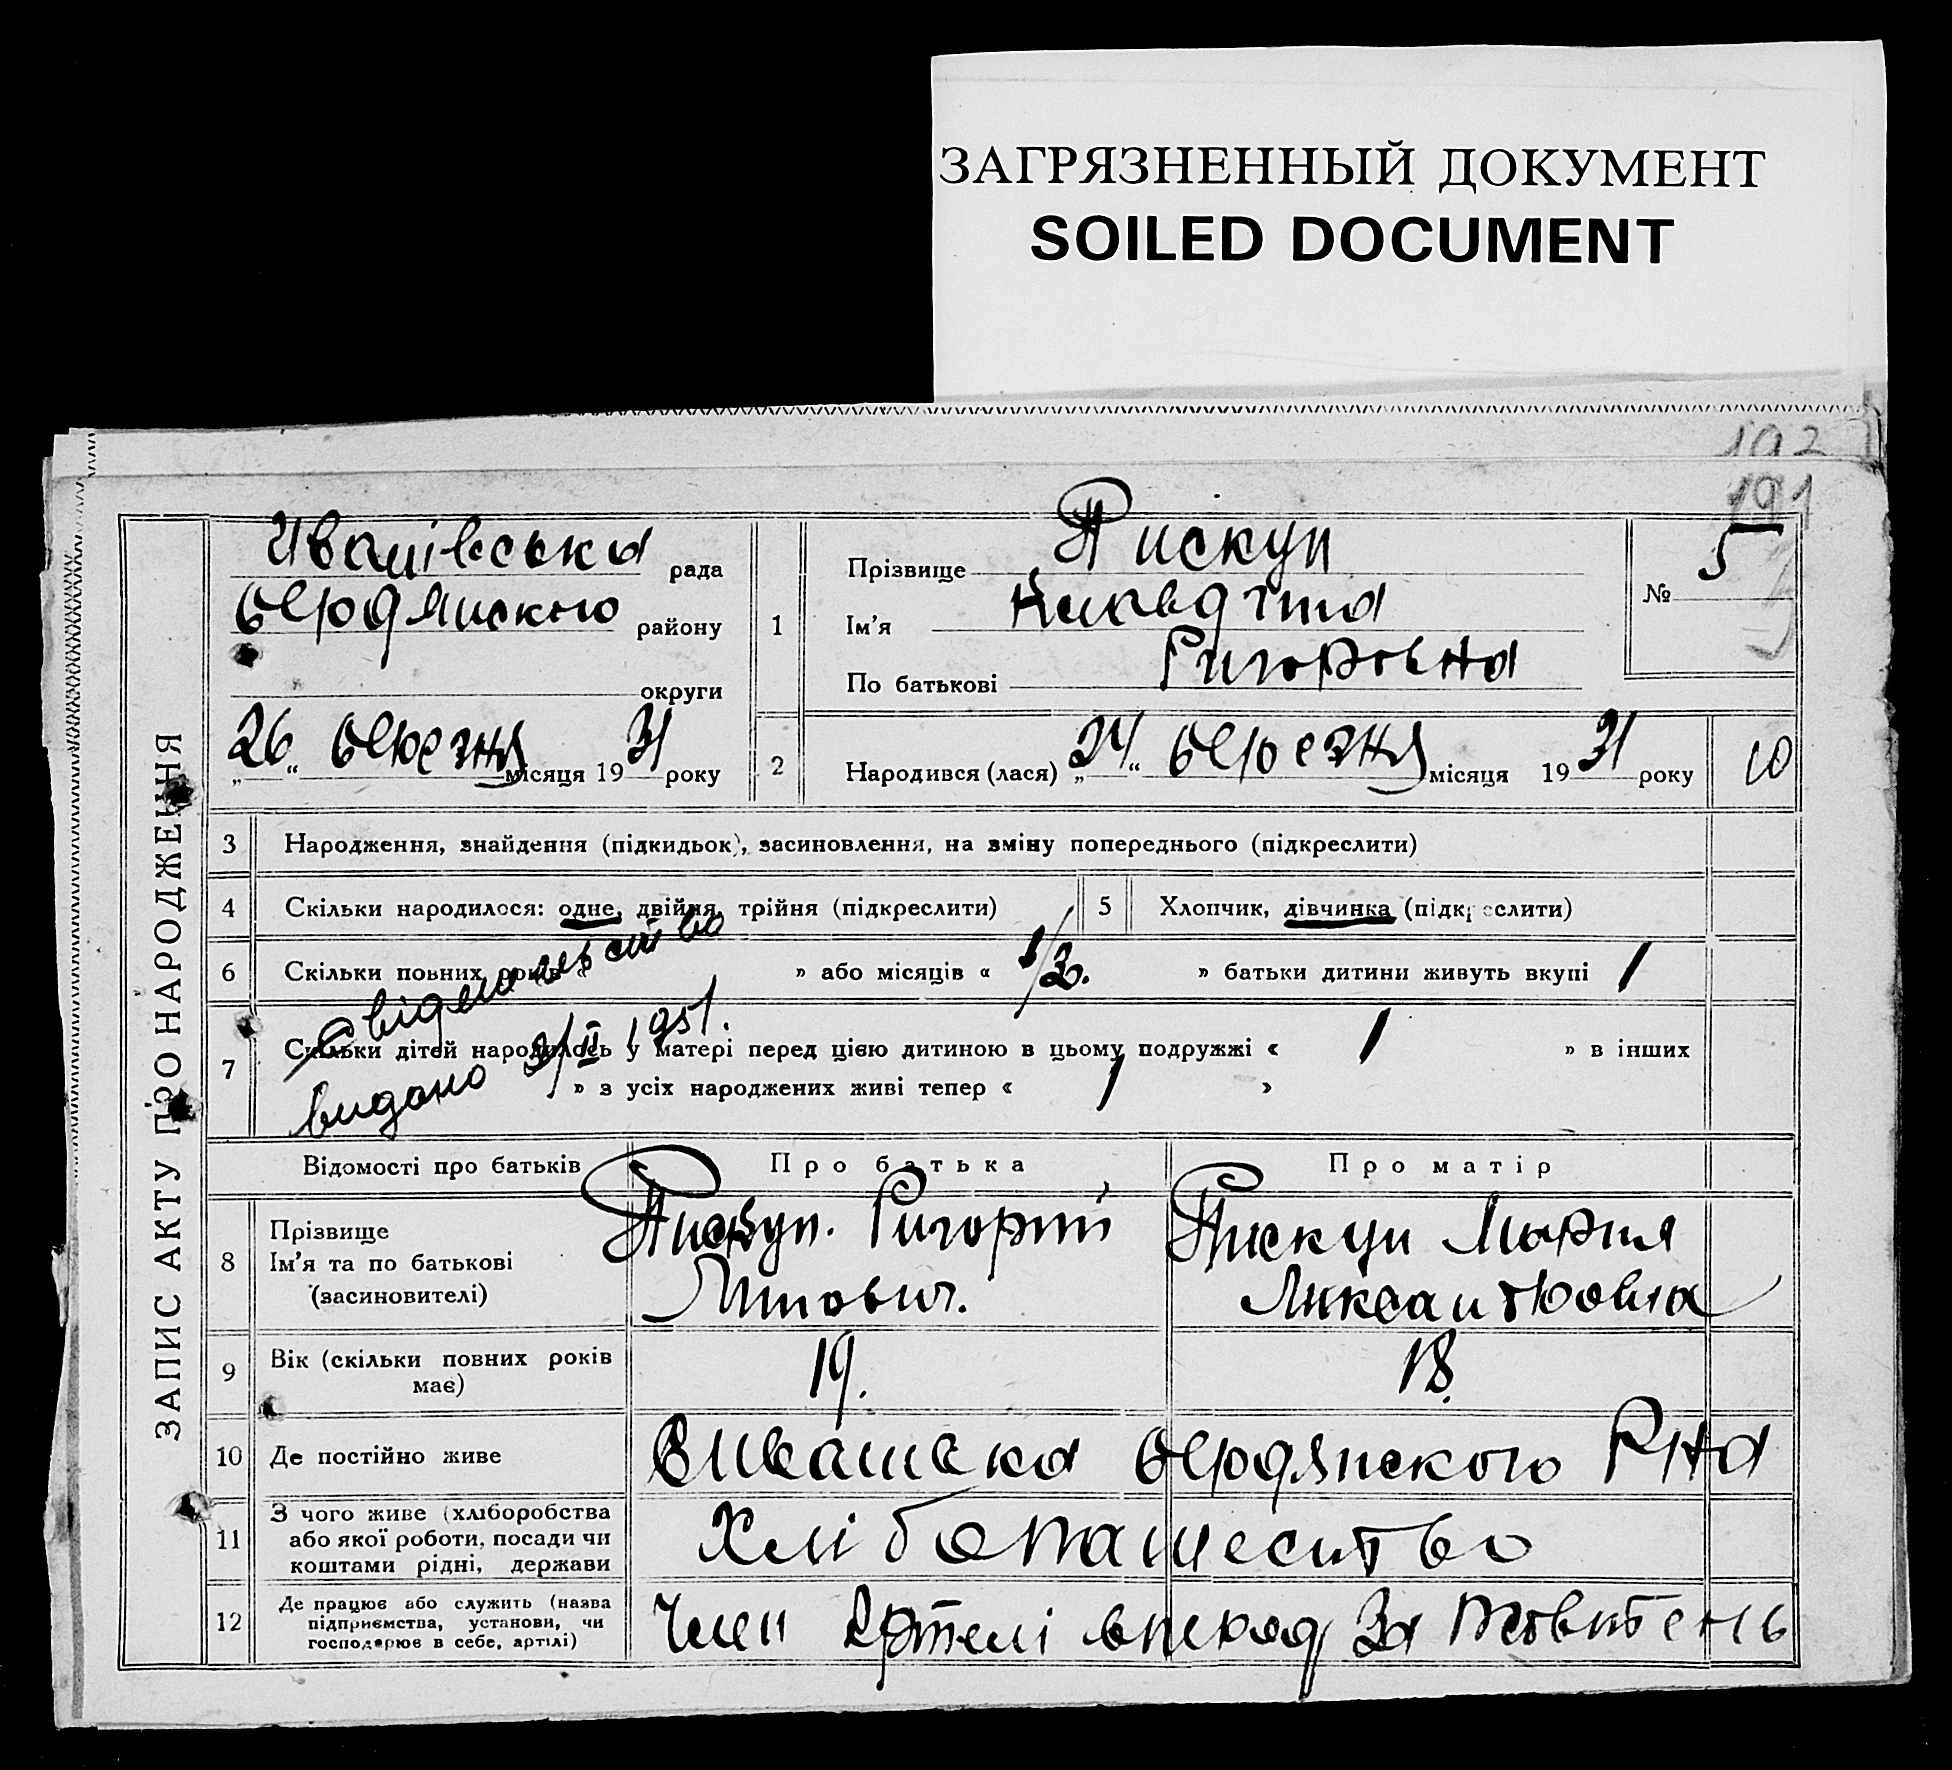 ЗАГРЯЗНЕННЫЙ ДОКУМЕНТ
SOILED DOCUMENT
192
191
ЗАПИС АКТУ ПРО НАРОДЖЕННЯ
рада
району
округи
„26“ березня місяця 1931 року
1
Прізвище Пискун
Ім'я
По батькові Григоровна
№ 5
2
Народився (лася) „24“ березня місяця 1931 року
10
3 Народження, знайдення (підкидьок), засиновлення, на зміну попереднього (підкреслити)
4 Скільки народилося: одне, двійня, трійня (підкреслити)
5 Хлопчик, дівчинка (підкреслити)
6 Скільки повних років « » або місяців « » батьки дитини живуть вкупі 1
7 Скільки дітей народилось у матері перед цією дитиною в цьому подружжі « 1 » в інших
» з усіх народжених живі тепер « 1 »
Свідительство
видано 9/II 1951.
Відомості про батьків
Про батька
Про матір
8 Прізвище
Ім'я та по батькові
(засиновителі)
Пискун. Григорій
Пискун Мария
9 Вік (скільки повних років
має)
19.
18.
10 Де постійно живе
11 З чого живе (хліборобства
або якої роботи, посади чи
коштами рідні, держави
Хлібопашество
12 Де працює або служить (назва
підприємства, установи, чи
господарює в себе, артілі)
Член Артелі вперод За